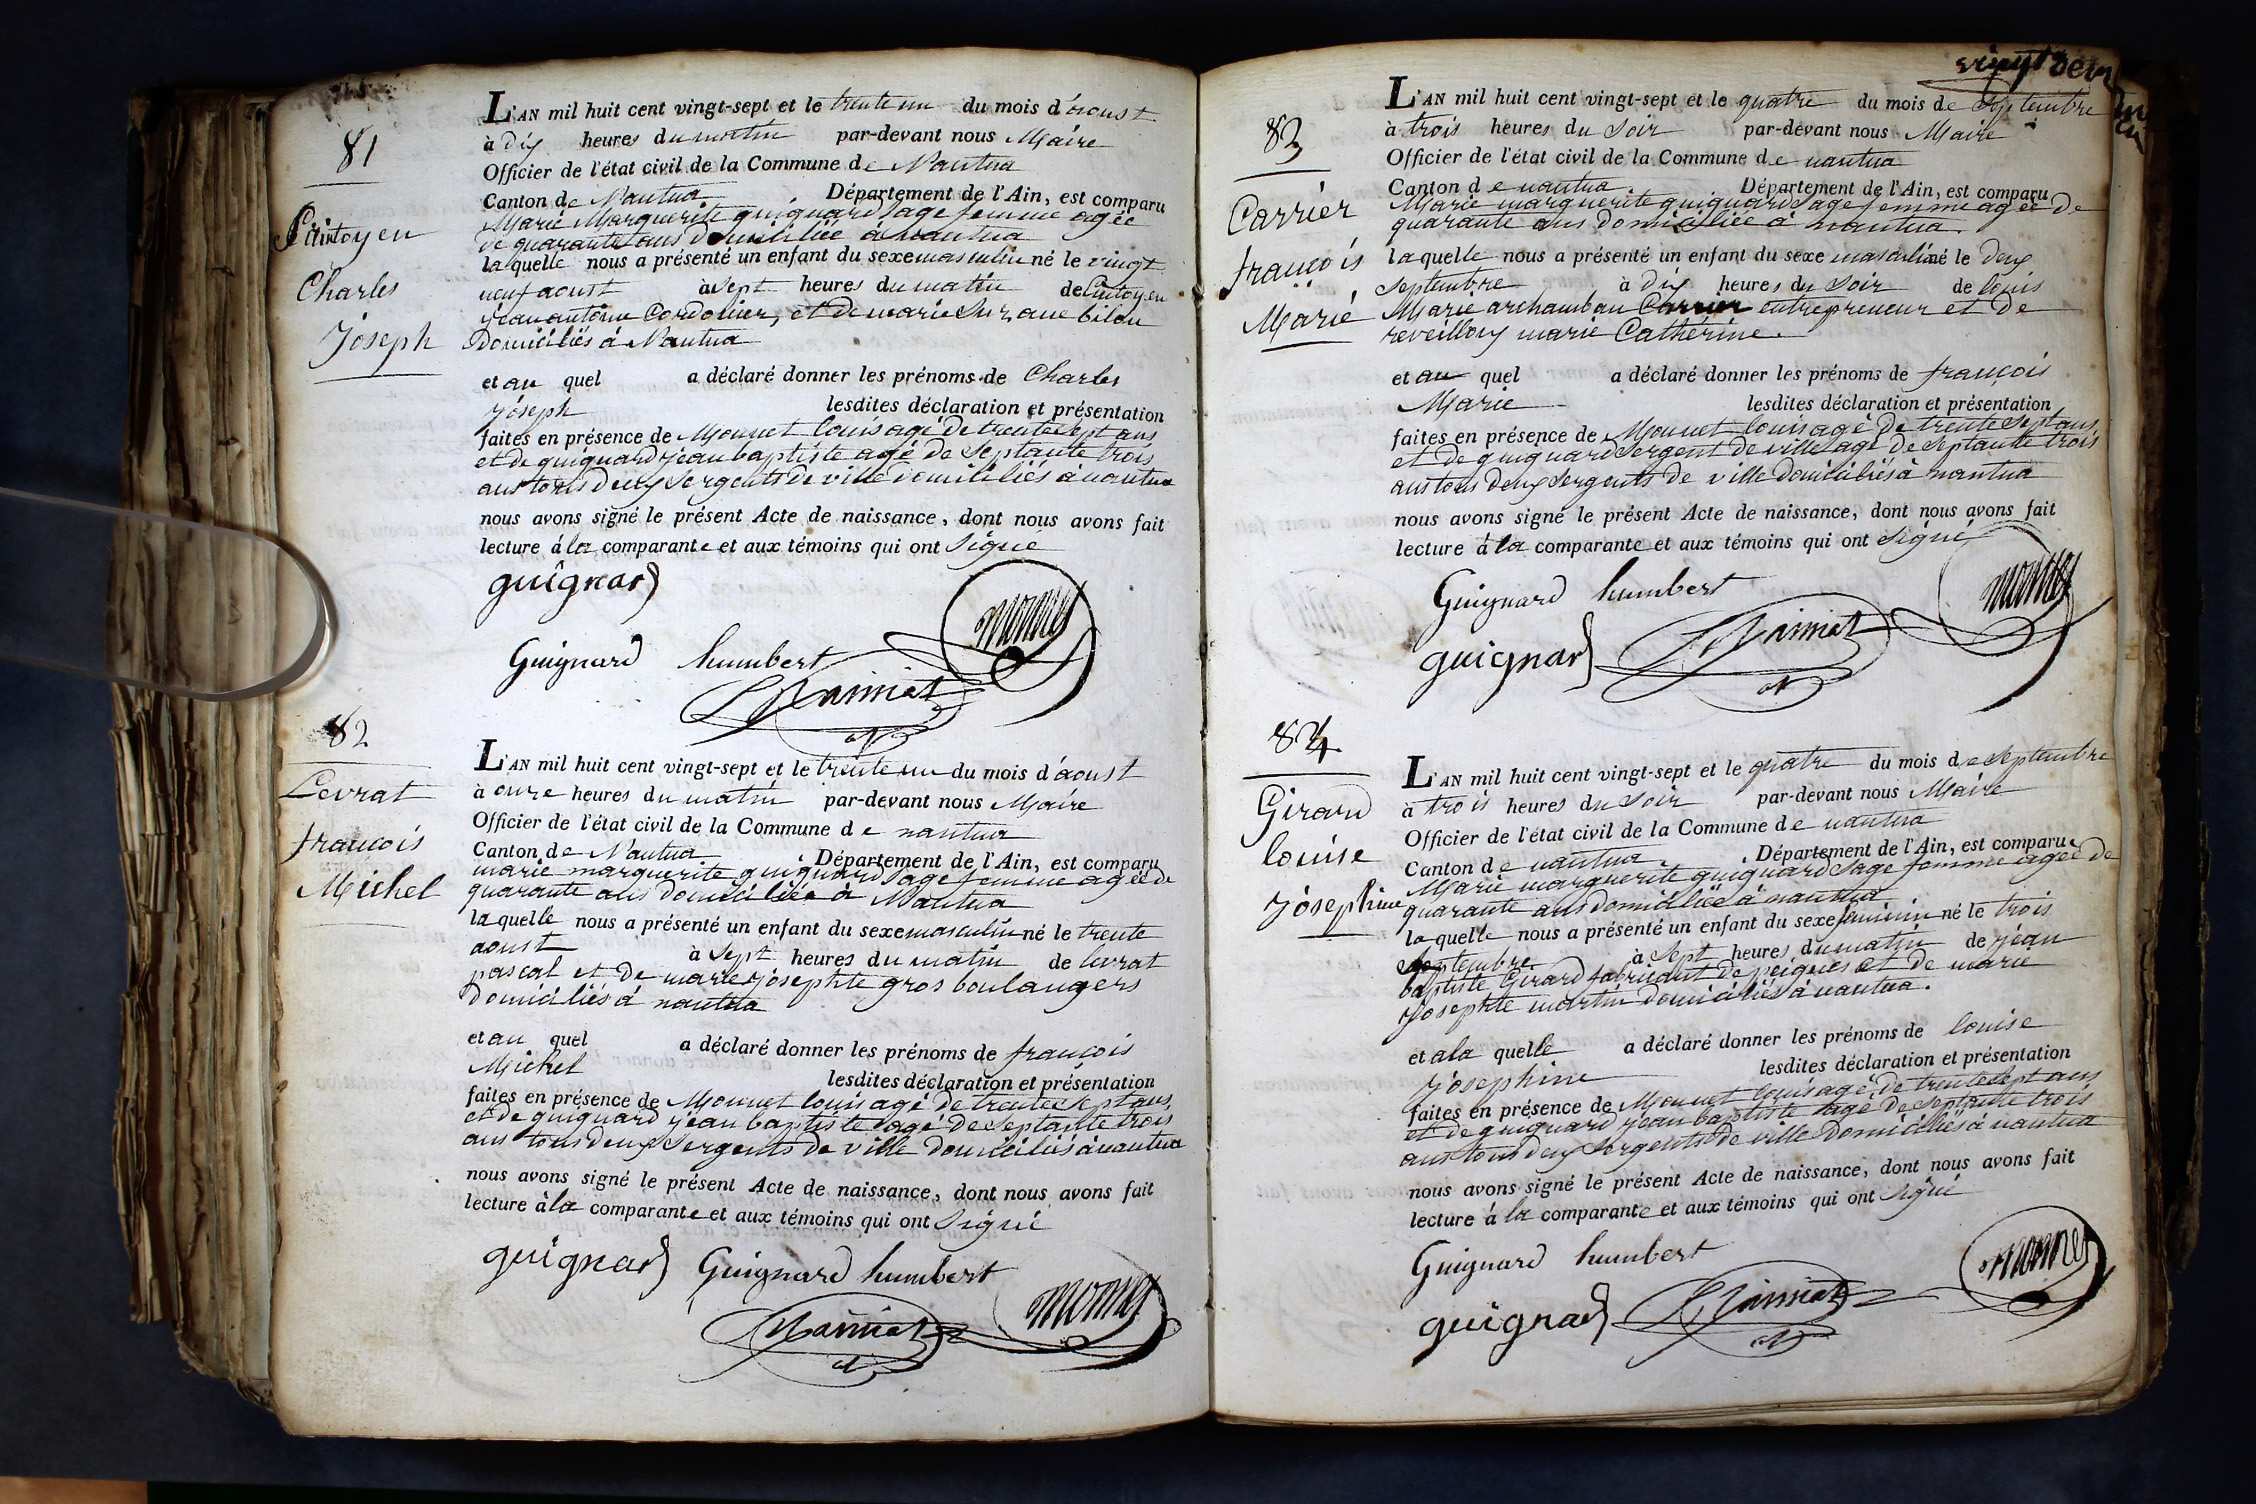 81
Cintoyen
Charles
Joseph
L'AN mil huit cent vingt-sept et le trente un du mois d'aoust
à dix heures du matin par-devant nous Maire
Officier de l'état civil de la Commune de Nantua
Canton de Nantua Département de l'Ain, est comparu
Marie Marguerite guignard sage femme agée
de quarante ans domiciliée à nantua
la quelle nous a présenté un enfant du sexe masculin né le vingt
neuf aoust à sept heures du matin de Cintoyen
jean antoine Cordonier, et de marie Suzane bilon
Domiciliés à Nantua
et au quel a déclaré donner les prénoms de Charles
joseph lesdites déclaration et présentation
faites en présence de Monnet louis agé de trente sept ans
et de guignard jean baptiste agé de septante trois
ans tous deux sergents de ville domiciliés à nantua
nous avons signé le présent Acte de naissance, dont nous avons fait
lecture à la comparante et aux témoins qui ont signé
guignard
monnet
Guignard humbert
82
Levrat
françois
Michel
L'AN mil huit cent vingt-sept et le trente un du mois d'aoust
à onze heures du matin par-devant nous Maire
Officier de l'état civil de la Commune de nantua
Canton de Nantua Département de l'Ain, est comparu
marie marguerite guignard sage femme agée de
quarante ans domiciliée à Nantua
la quelle nous a présenté un enfant du sexe masculin né le trente
aoust à sept heures du matin de levrat
pascal et de marie josephte gros boulangers
domiciliés à nantua
et au quel a déclaré donner les prénoms de françois
Michel lesdites déclaration et présentation
faites en présence de Monnet louis agé de trente sept ans
et de guignard jean baptiste agé de septante trois
ans tous deux sergents de ville domiciliés à nantua
nous avons signé le présent Acte de naissance, dont nous avons fait
lecture à la comparante et aux témoins qui ont signé
guignard Guignard humbert
monnet
vingt deux
83
Carrier
françois
Marie
L'AN mil huit cent vingt-sept et le quatre du mois de septembre
à trois heures du soir par-devant nous Maire
Officier de l'état civil de la Commune de nantua
Canton de nantua Département de l'Ain, est comparu
Marie marguerite guignard sage femme agée de
quarante ans domiciliée à nantua.
la quelle nous a présenté un enfant du sexe masculin né le deux
septembre à dix heures du soir de louis
Marie archambau Carrier entrepreneur et de
reveillony marie Catherine.
et au quel a déclaré donner les prénoms de françois
Marie lesdites déclaration et présentation
faites en présence de Monnet louis agé de trente sept ans
et de guignard sergent de ville agé de septante trois
ans tous deux sergents de ville domiciliés à nantua
nous avons signé le présent Acte de naissance, dont nous avons fait
lecture à la comparante et aux témoins qui ont signé
monnet
Guignard humbert
guignard
84
Girard
louise
Joséphine
L'AN mil huit cent vingt-sept et le quatre du mois de septembre
à trois heures du soir par-devant nous Maire
Officier de l'état civil de la Commune de nantua
Canton de nantua Département de l'Ain, est comparu
Marie marguerite guignard sage femme agée de
quarante ans domiciliée à nantua
la quelle nous a présenté un enfant du sexe féminin né le trois
septembre à sept heures du matin de jean
baptiste Girard fabricant de peignes et de marie
josephte martin domiciliés à nantua.
et a la quelle a déclaré donner les prénoms de louise
josephine lesdites déclaration et présentation
faites en présence de Monnet louis agé de trente sept ans
et de guignard jean baptiste agé de septante trois
ans tous deux sergents de ville domiciliés à nantua
nous avons signé le présent Acte de naissance, dont nous avons fait
lecture à la comparante et aux témoins qui ont signé
Guignard humbert
monnet
guignard